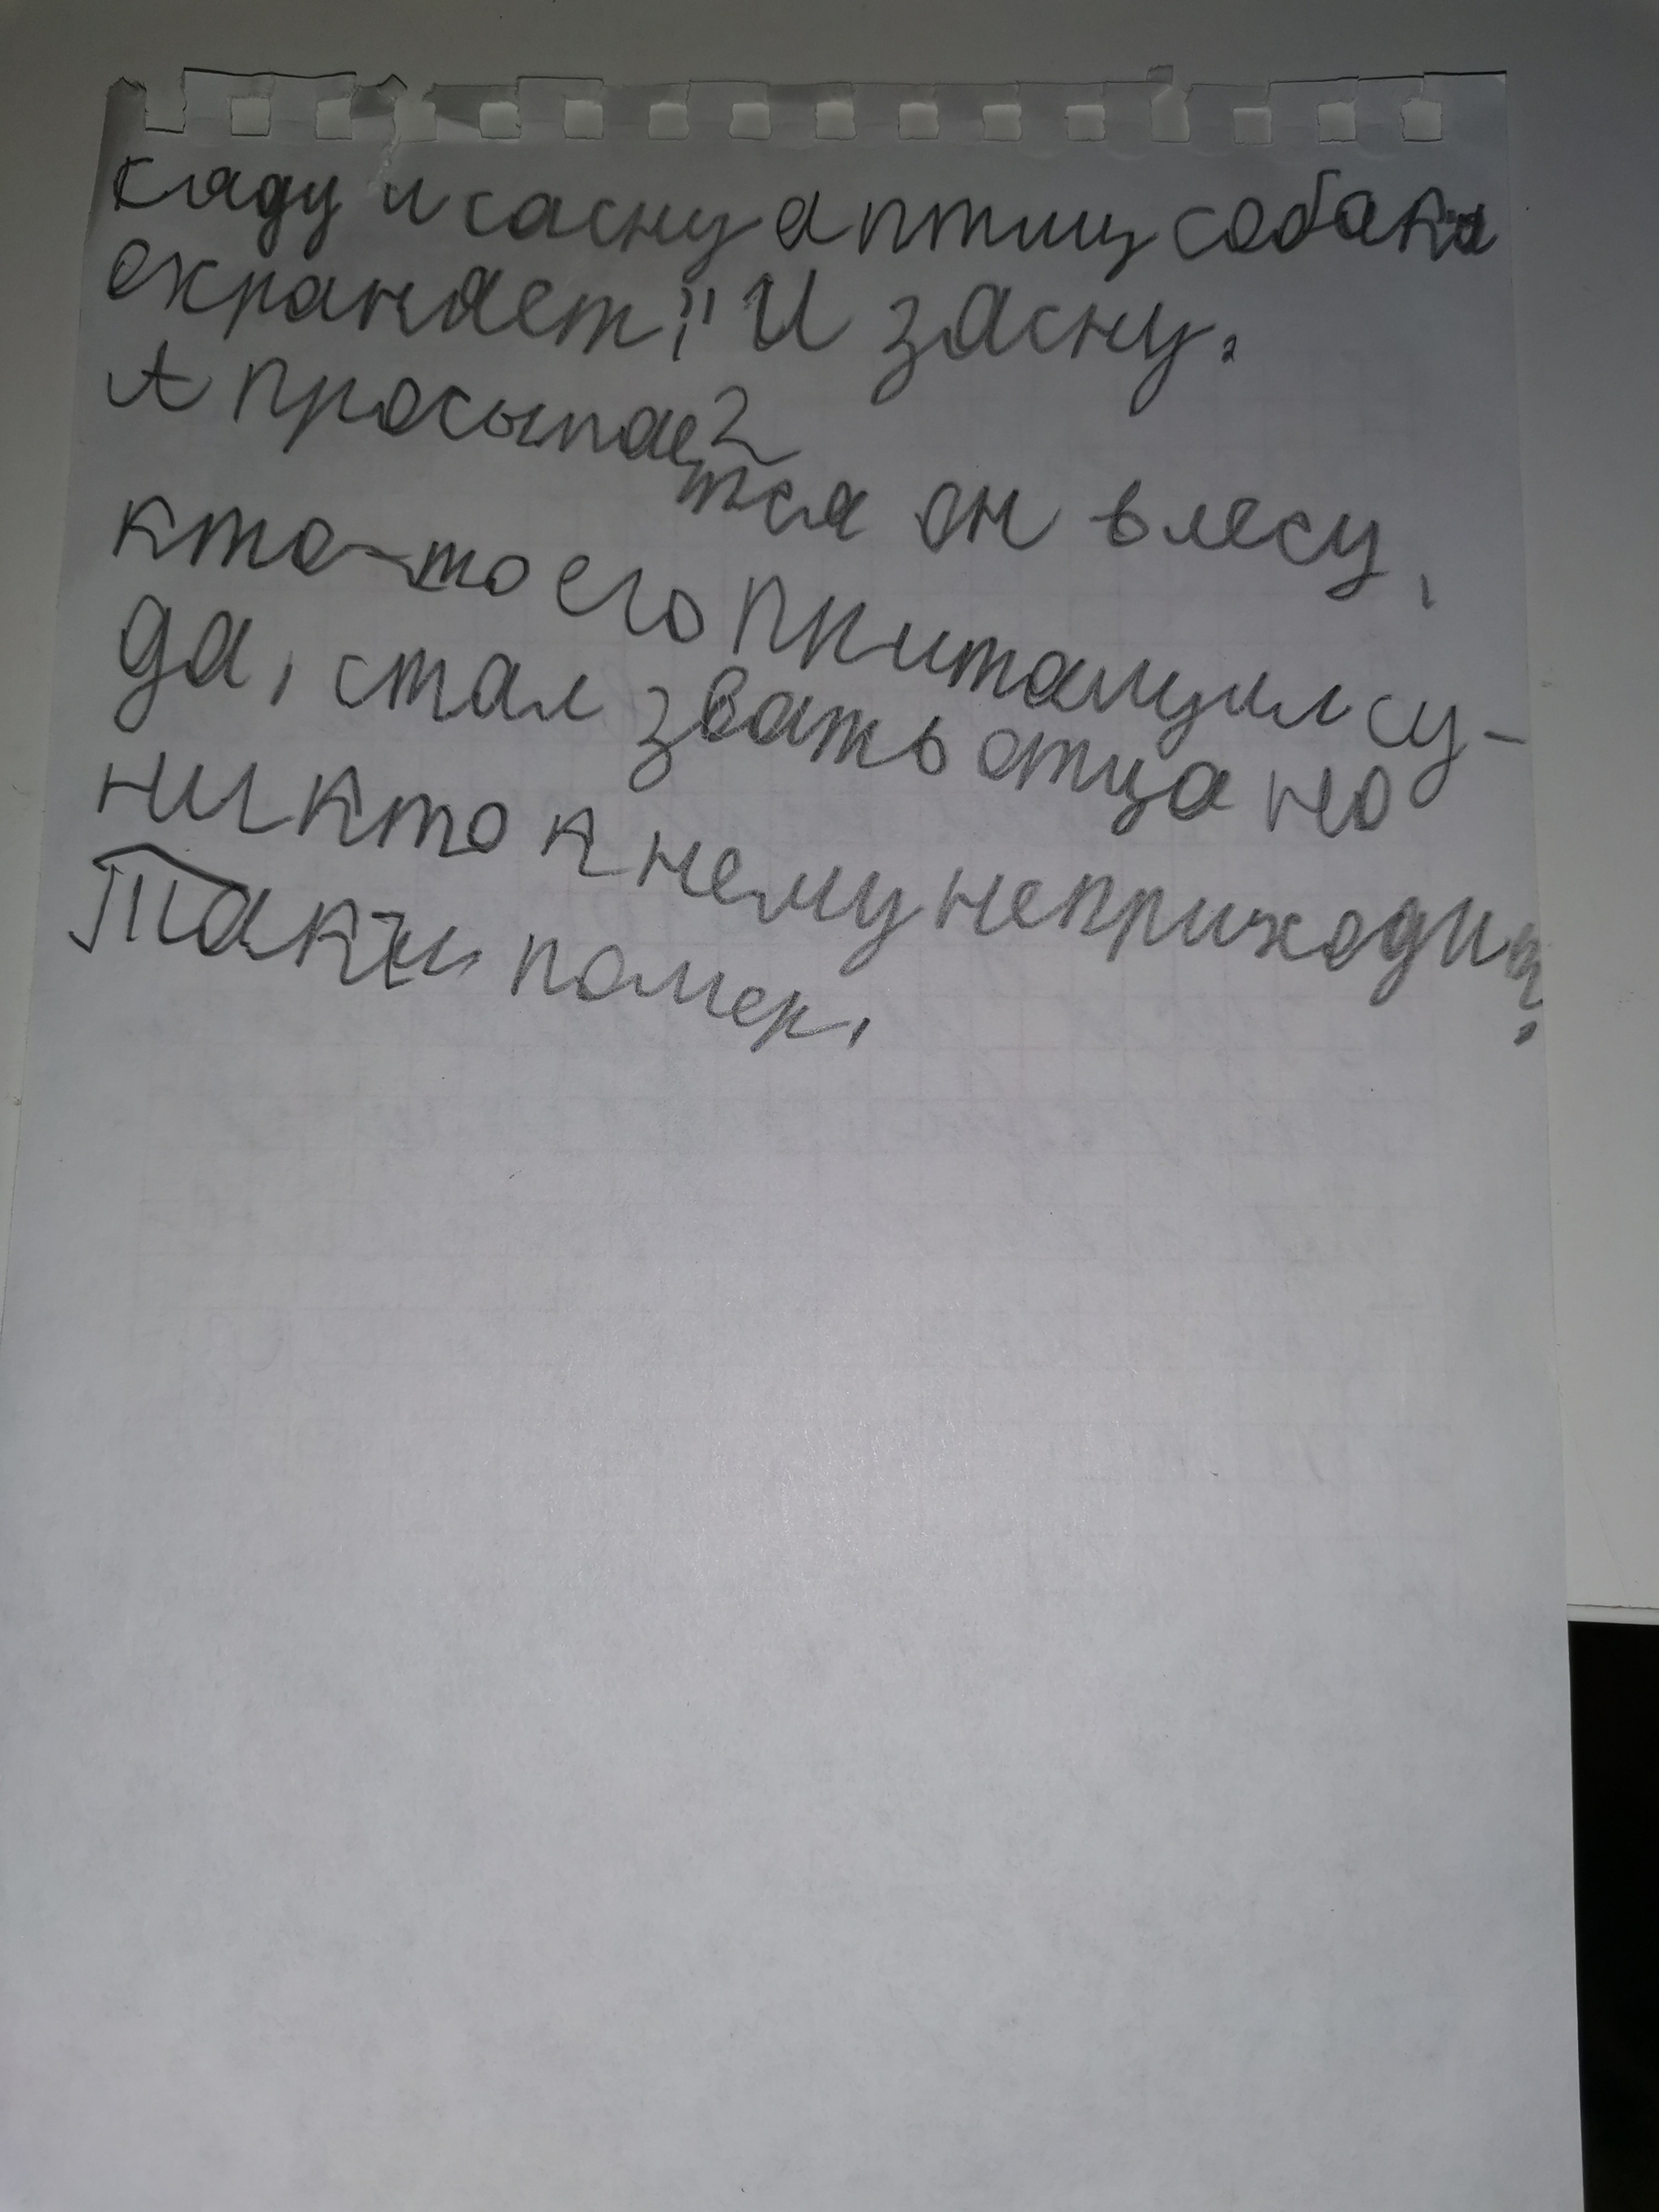 сяду и сасну а птиц собака
охраняет!" И засну.
А просыпае2
тся он в лесу,
кто-то его притащил сю-
да, стал звать отца но
никто к нему неприходил.
Так и помер.